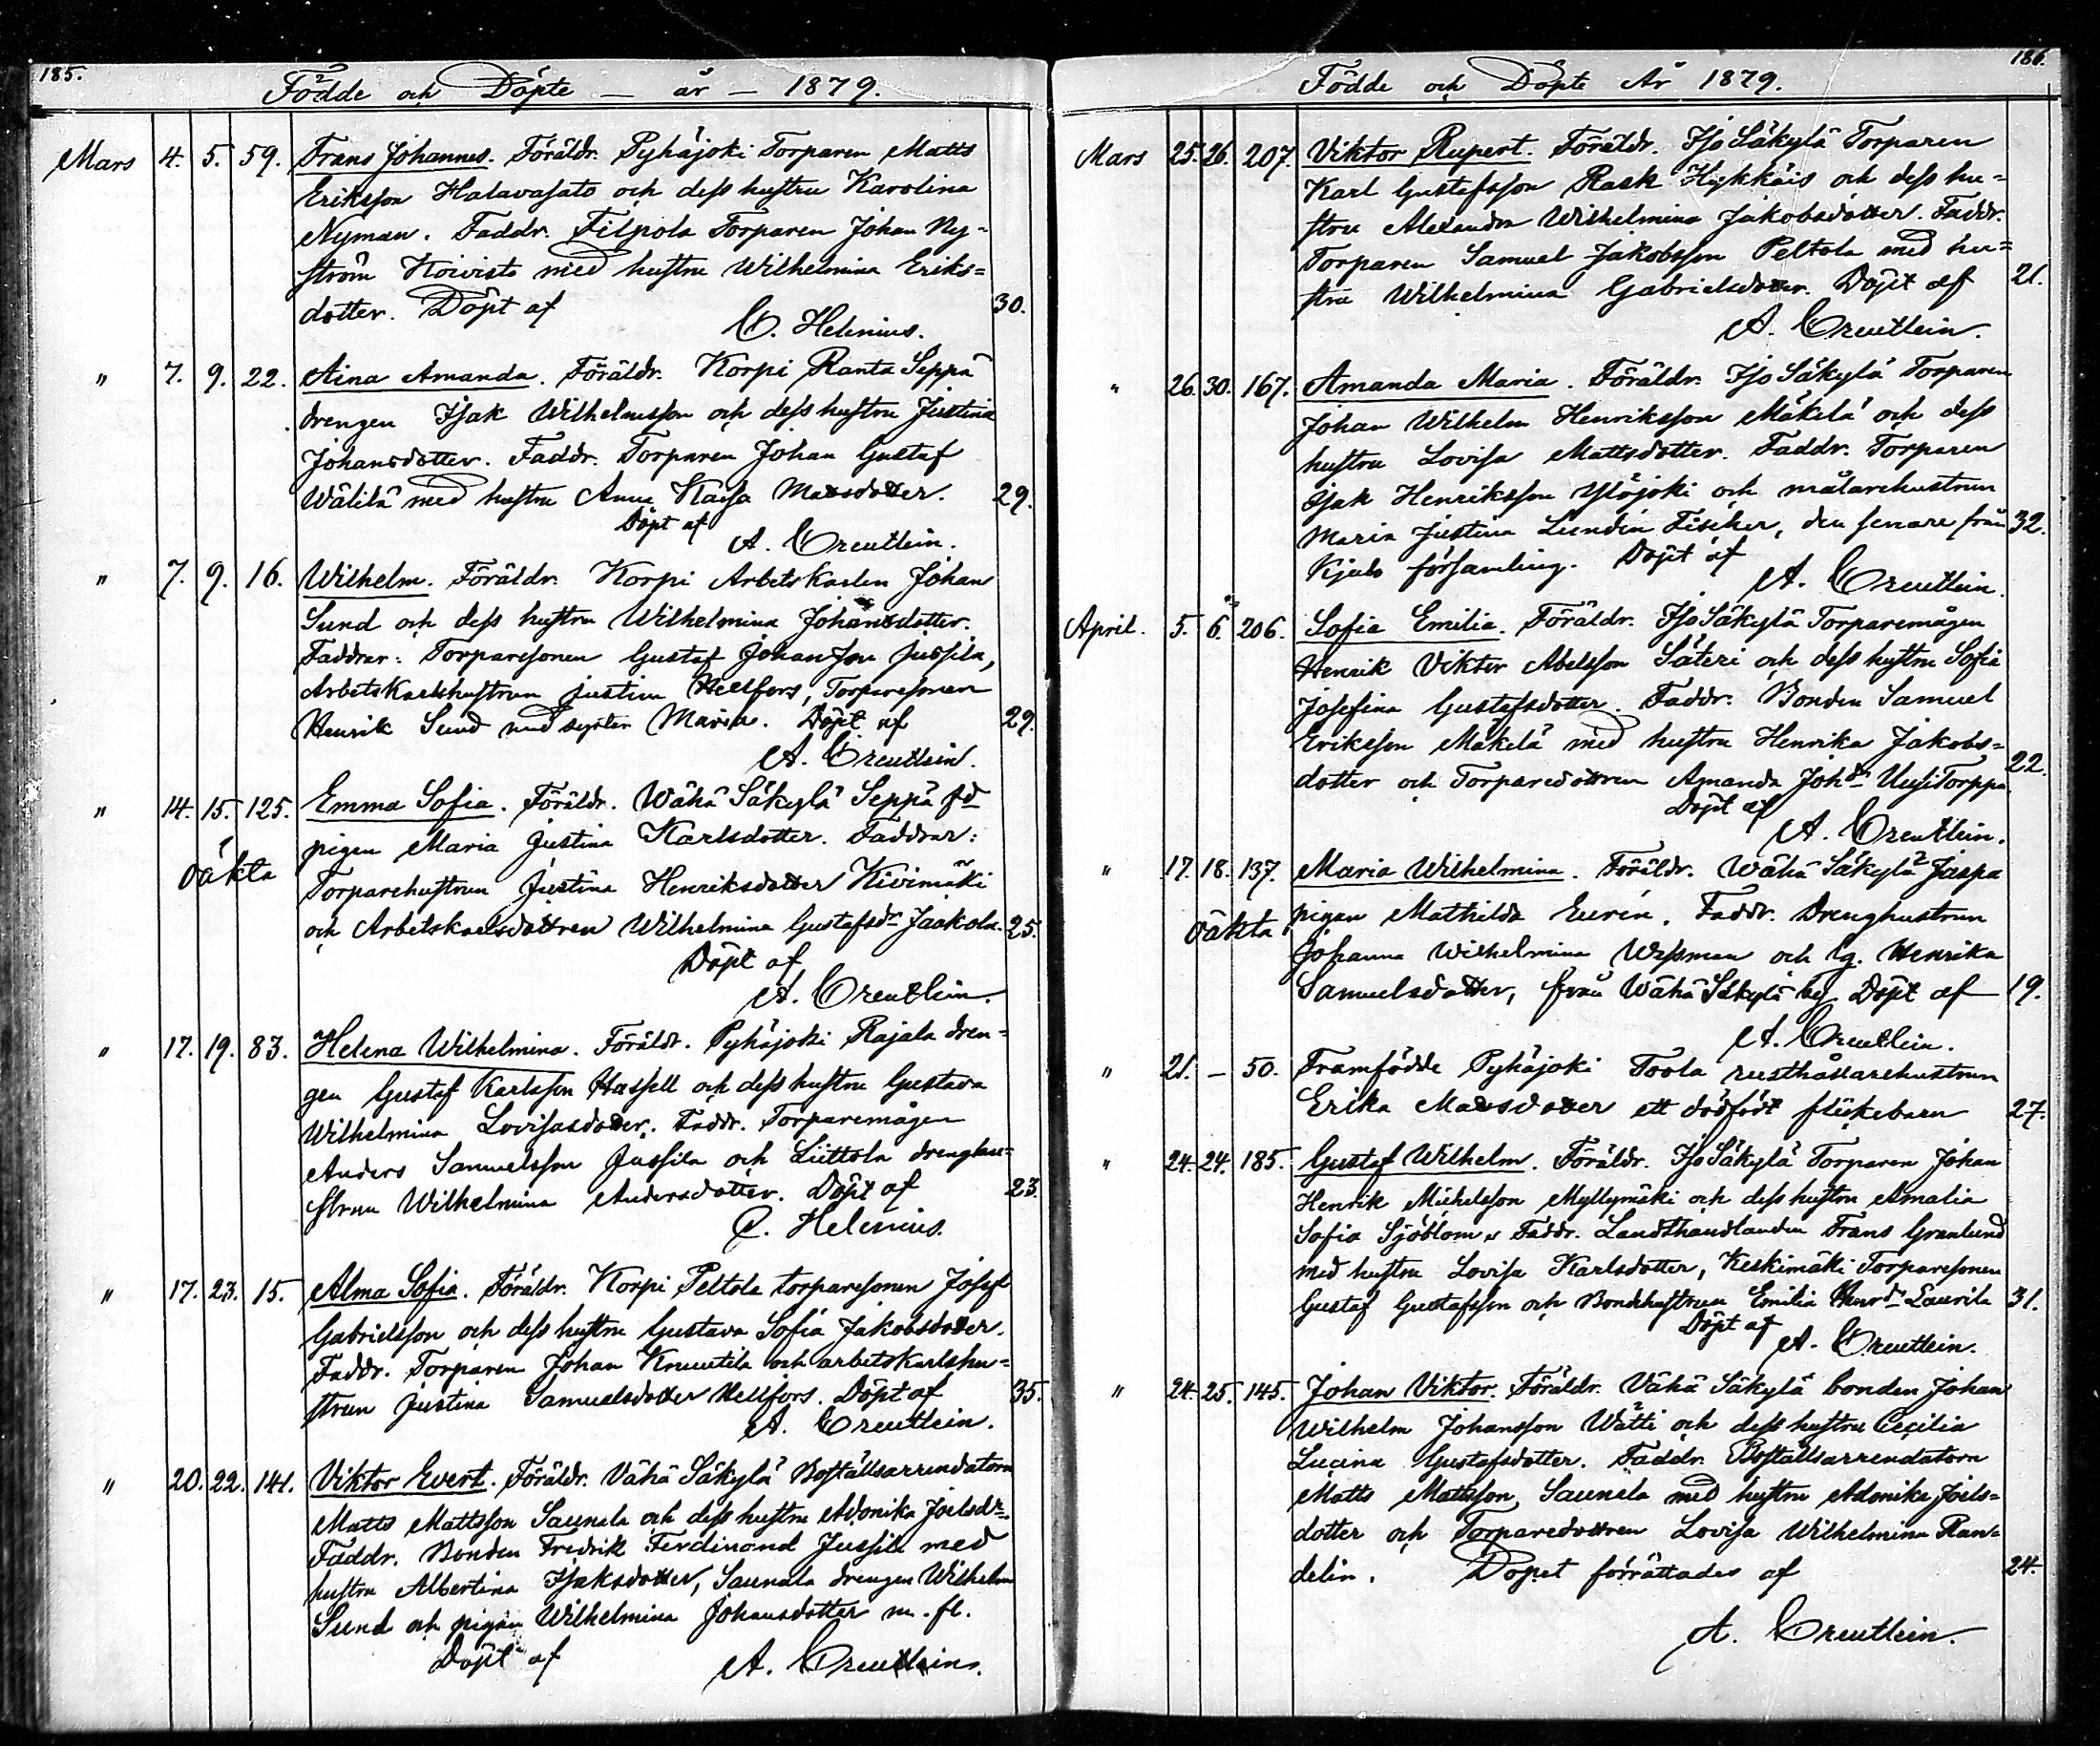 185.
Födde och Döpte – år – 1879.
Mars 4. 5. 59. Frans Johannes. Föräldr. Pyhäjoki Torparen Matts
Eriksson Halavasato och dess hustru Karolina
Nyman. Faddr. Filpola Torparen Johan Ny=
ström Koivisto med hustru Wilhelmina Eriks=
dotter. Döpt af 30.
C. Helenius.
" 7. 9. 22. Aina Amanda. Föräldr. Korpi Ranta Seppä
drengen Isak Wilhelmsson och dess hustru Justina
Johansdotter. Faddr. Torparen Johan Gustaf
Wälilä med hustru Anna Kaisa Mattsdotter. 29.
Döpt af
A. Creutlein.
" 7. 9. 16. Wilhelm. Föräldr. Korpi Arbetskarlen Johan
Sund och dess hustru Wilhelmina Johansdotter.
Faddrar: Torparesonen Gustaf Johansson Jussila,
Arbetskarlshustrun Justina Hellfors, Torparesonen
Henrik Sund med syster Maria. Döpt af 29.
A. Creutlein.
" 14. 15. 125. Emma Sofia. Föräldr. Wähä Säkylä Seppä fd
pigan Maria Justina Karlsdotter. Faddrar:
oäkta Torparehustrun Justina Henriksdotter Kivimäki
och Arbetskarlsdottren Wilhelmina Gustafsdr Jaakola. 25.
Döpt af
A. Creutlein.
" 17. 19. 83. Helena Wilhelmina. Föräldr. Pyhäjoki Rajala dren=
gen Gustaf Karlsson Hassell och dess hustru Gustava
Wilhelmina Lovisasdotter. Faddr. Torparemågen
Anders Samuelsson Jussila och Liittola drenghu=
strun Wilhelmina Andersdotter. Döpt af 23.
C. Helenius.
" 17. 23. 15. Alma Sofia. Föräldr. Korpi Peltola torparesonen Josef
Gabrielsson och dess hustru Gustava Sofia Jakobsdotter.
Faddr. Torparen Johan Knuutila och arbetskarlshu=
strun Justina Samuelsdotter Hellfors. Döpt af 35.
A. Creutlein.
" 20. 22. 141. Viktor Evert. Föräldr. Vähä Säkylä Boställsarrendatorn
Matts Mattsson Saunala och dess hustru Adonika Joelsdr.
Faddr. Bonden Fredrik Ferdinand Jussila med
hustru Albertina Isaksdotter, Saunala drengen Wilhelm
Sund och pigan Wilhelmina Johansdotter m. fl.
Döpt af
A. Creutlein.
186.
Födde och Döpte År 1879.
Mars 25. 26. 207. Viktor Rupert. Föräldr. Iso Säkylä Torparen
Karl Gustafsson Rask Hykkäis och dess hu=
stru Alexandra Wilhelmina Jakobsdotter. Faddr.
Torparen Samuel Jakobsson Peltola med hu=
stru Wilhelmina Gabrielsdotter. Döpt af 21.
A. Creutlein.
" 26. 30. 167. Amanda Maria. Föräldr. Iso Säkylä Torparen
Johan Wilhelm Henriksson Mäkelä och dess
hustru Lovisa Mattsdotter. Faddr. Torparen
Isak Henriksson Ylöjoki och målarehustrun
Maria Justina Lundin Fischer, den senare från 32.
Kjulo församling. Döpt af
A. Creutlein.
April. 5. 6. 206. Sofia Emilia. Föräldr. Iso Säkylä Torparemågen
Henrik Viktor Abelsson Säteri och dess hustru Sofia
Josefina Gustafsdotter. Faddr. Bonden Samuel
Eriksson Mäkelä med hustru Henrika Jakobs=
dotter och Torparedottren Amanda Johdr UusiTorppa 22.
Döpt af
A. Creutlein.
" 17. 18. 137. Maria Wilhelmina. Föräldr. Wähä Säkylä Jaspa
oäkta pigan Mathilda Eurén. Faddr. Drenghustrun
Johanna Wilhelmina Wessman och Henrika
Samuelsdotter, från Wähä Säkylä by Döpt af 19.
A. Creutlein.
" 21. – 50. Framfödde Pyhäjoki Toola rusthållarehustrun
Erika Mattsdotter ett dödfödt flickebarn 27.
" 24. 24. 185. Gustaf Wilhelm. Föräldr. Iso Säkylä Torparen Johan
Henrik Michelsson Myllymäki och dess hustru Amalia
Sofia Sjöblom. Faddr. Landthandlanden Frans Granlund
med hustru Lovisa Karlsdotter, Keskimäki Torparesonen
Gustaf Gustafsson och Bondehustrun Emilia Henrdr Laurila 31.
Döpt af
A. Creutlein.
" 24. 25. 145. Johan Viktor. Föräldr. Vähä Säkylä bonden Johan
Wilhelm Johansson Wätti och dess hustru Cecilia
Lucina Gustafsdotter. Faddr. Boställsarrendatorn
Matts Mattsson Saunala med hustru Adonika Joels=
dotter och Torparedottren Lovisa Wilhelmina Ran=
delin. Dopet förrättades af 24.
A. Creutlein.